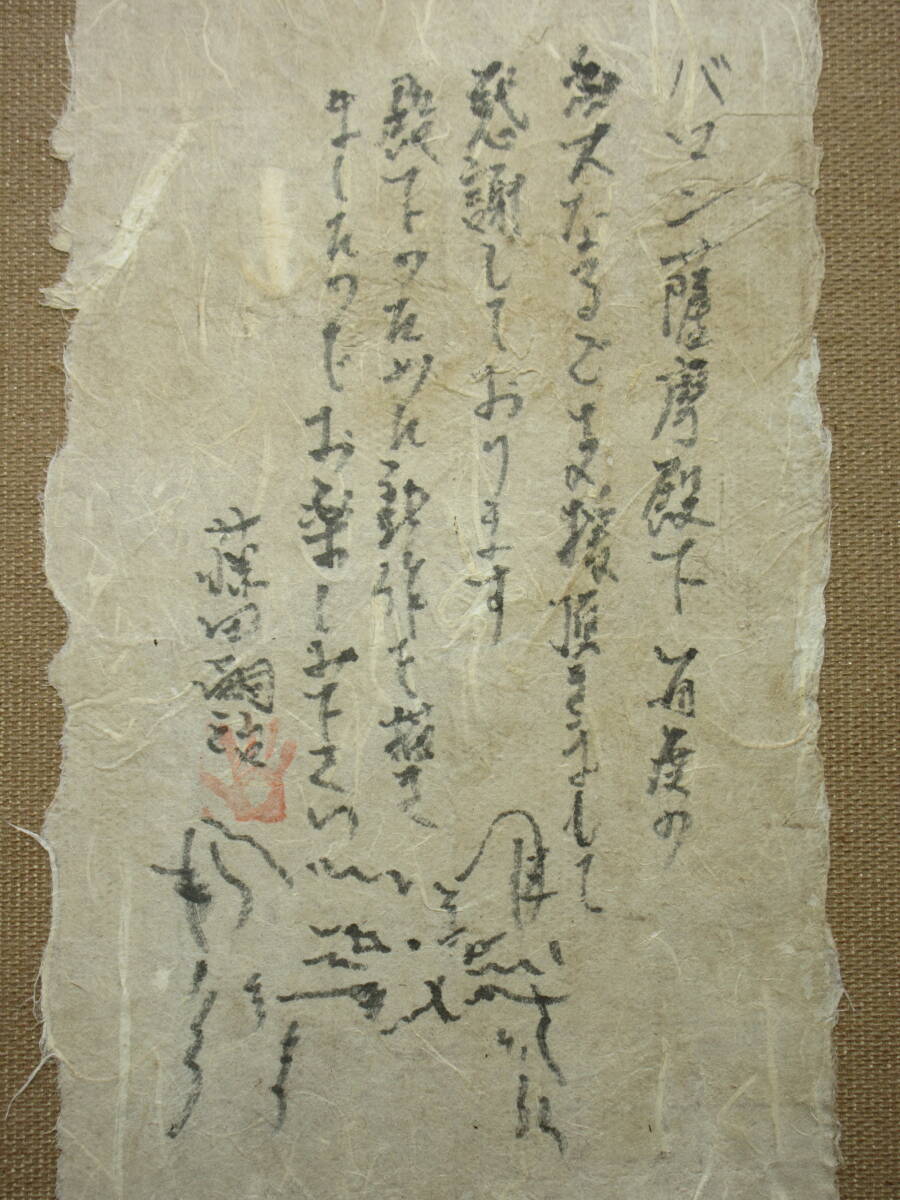 バロン薩摩殿下 毎度の
多大なるご支援頂きまして
感謝しております
殿下のために新作を描き
ましたのでお楽しみ下さい
藤田嗣治